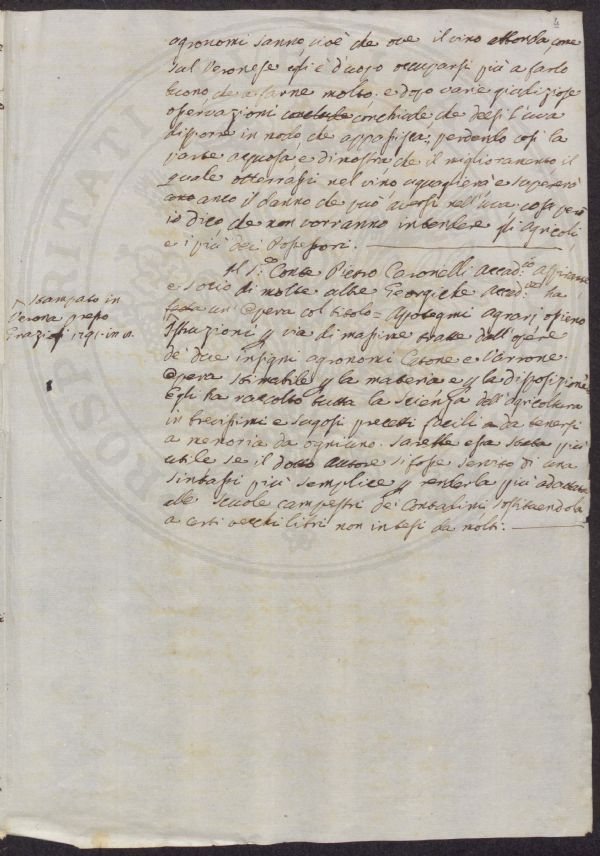 4
agronomi sanno, cioè che ove il vino abbonda come
sul Veronese egli è d'uopo occuparsi più a farlo
buono che a farne molto. e dopo varie giudiziose
osservazioni conchiude che deesi l'uva
disporre in modo, che appassisca; perdendo così la
parte acquosa, e dimostra che il miglioramento il
quale otterrassi nel vino uguaglierà e supererà
anco il danno che può aversi nell'uva. cosa però
io dico che non vorranno intendere gli agricoli
e i più dei Possessori.
Il S.r Conte Pietro Caronelli Accad.co
e socio di molte altre Georgiche Accad. ha
un'Opera col titolo = Apotegmi agrarj ossieno
Istruzioni p via di massime tratte dall'opere
de' due insigni agronomi Catone e Varrone.
Opera stimabile p la materia e p la disposizione
Egli ha raccolto tutta la scienza dell'agricoltura
in brevissimi e sugosi precetti facili a da tenersi
a memoria da ogniuno. Sarebbe essa stata più
utile se il dotto Autore si fosse servito di una
sintassi più semplice p renderla più adattata
alle scuole campestri dei Contadini sostituendola
a certi vecchi libri non intesi da molti.
stampato in
Verona presso
1791. in